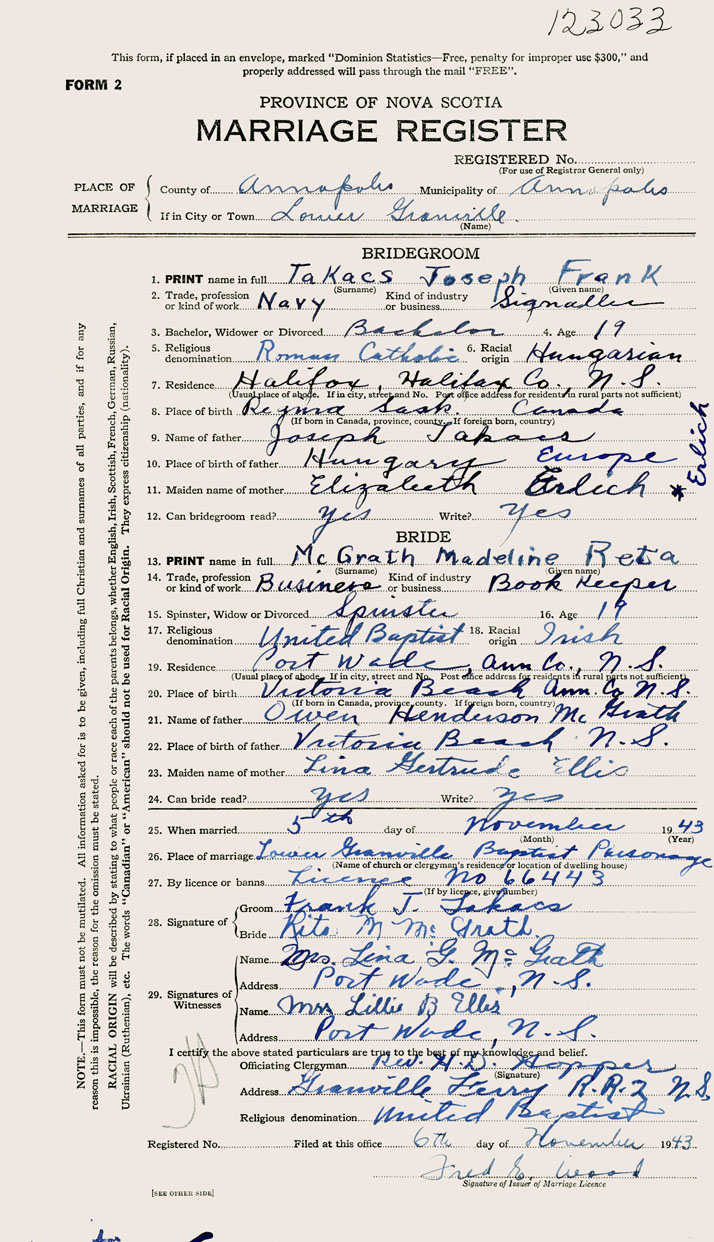 123033
This form, if placed in an envelope, marked "Dominion Statistics—Free, penalty for improper use $300," and
properly addressed will pass through the mail "FREE".
FORM 2
PROVINCE OF NOVA SCOTIA
MARRIAGE REGISTER
REGISTERED No.
(For use of Registrar General only)
PLACE OF MARRIAGE
County of Annapolis Municipality of Annapolis
If in City or Town Lower Granville.
(Name)
BRIDEGROOM
1. PRINT name in full Takacs Joseph Frank
(Surname) (Given name)
2. Trade, profession or kind of work Navy Kind of industry or business Signaller
3. Bachelor, Widower or Divorced Bachelor 4. Age 19
5. Religious denomination Roman Catholic 6. Racial origin Hungarian
7. Residence Halifax, Halifax Co., N.S.
(Usual place of abode. If in city, street and No. Post office address for residents in rural parts not sufficient)
8. Place of birth Regina Sask. Canada
(If born in Canada, province, county. If foreign born, country)
9. Name of father Joseph Takacs
10. Place of birth of father Hungary Europe
11. Maiden name of mother Elizabeth Erlich * Erlich
12. Can bridegroom read? yes Write? Yes
BRIDE
13. PRINT name in full McGrath Madeline Reta
(Surname) (Given name)
14. Trade, profession or kind of work Business Kind of industry or business Book Keeper
15. Spinster, Widow or Divorced Spinster 16. Age 19
17. Religious denomination United Baptist 18. Racial origin Irish
19. Residence Port Wade, Ann Co., N.S.
(Usual place of abode. If in city, street and No. Post office address for residents in rural parts not sufficient)
20. Place of birth Victoria Beach Ann. Co N.S.
(If born in Canada, province, county. If foreign born, country)
21. Name of father Owen Henderson McGrath
22. Place of birth of father Victoria Beach N.S.
23. Maiden name of mother Lina Gertrude Ellis
24. Can bride read? yes Write? yes
25. When married 5th day of November 1943
(Month) (Year)
26. Place of marriage Lower Granville Baptist Parsonage
(Name of church or clergyman's residence or location of dwelling house)
27. By licence or banns licence No 66443
(If by licence, give number)
28. Signature of
Groom Frank J. Takacs
Bride Rita M McGrath
29. Signatures of Witnesses
Name Mrs. Lina G. McGrath
Address Port Wade, N.S.
Name Mrs Lillie B Ellis
Address Port Wade, N.S.
I certify the above stated particulars are true to the best of my knowledge and belief.
Officiating Clergyman Rev. H.D. Hopper
(Signature)
Address Granville Ferry R.R.2 N.S.
Religious denomination United Baptist
Registered No. Filed at this office 6th day of November 1943
Fred E. Wood
Signature of Issuer of Marriage Licence
[SEE OTHER SIDE]
NOTE.—This form must not be mutilated. All information asked for is to be given, including full Christian and surnames of all parties, and if for any
reason this is impossible, the reason for the omission must be stated.
RACIAL ORIGIN will be described by stating to what people or race each of the parents belongs, whether English, Irish, Scottish, French, German, Russian,
Ukrainian (Ruthenian), etc. The words "Canadian" or "American" should not be used for Racial Origin. They express citizenship (nationality).